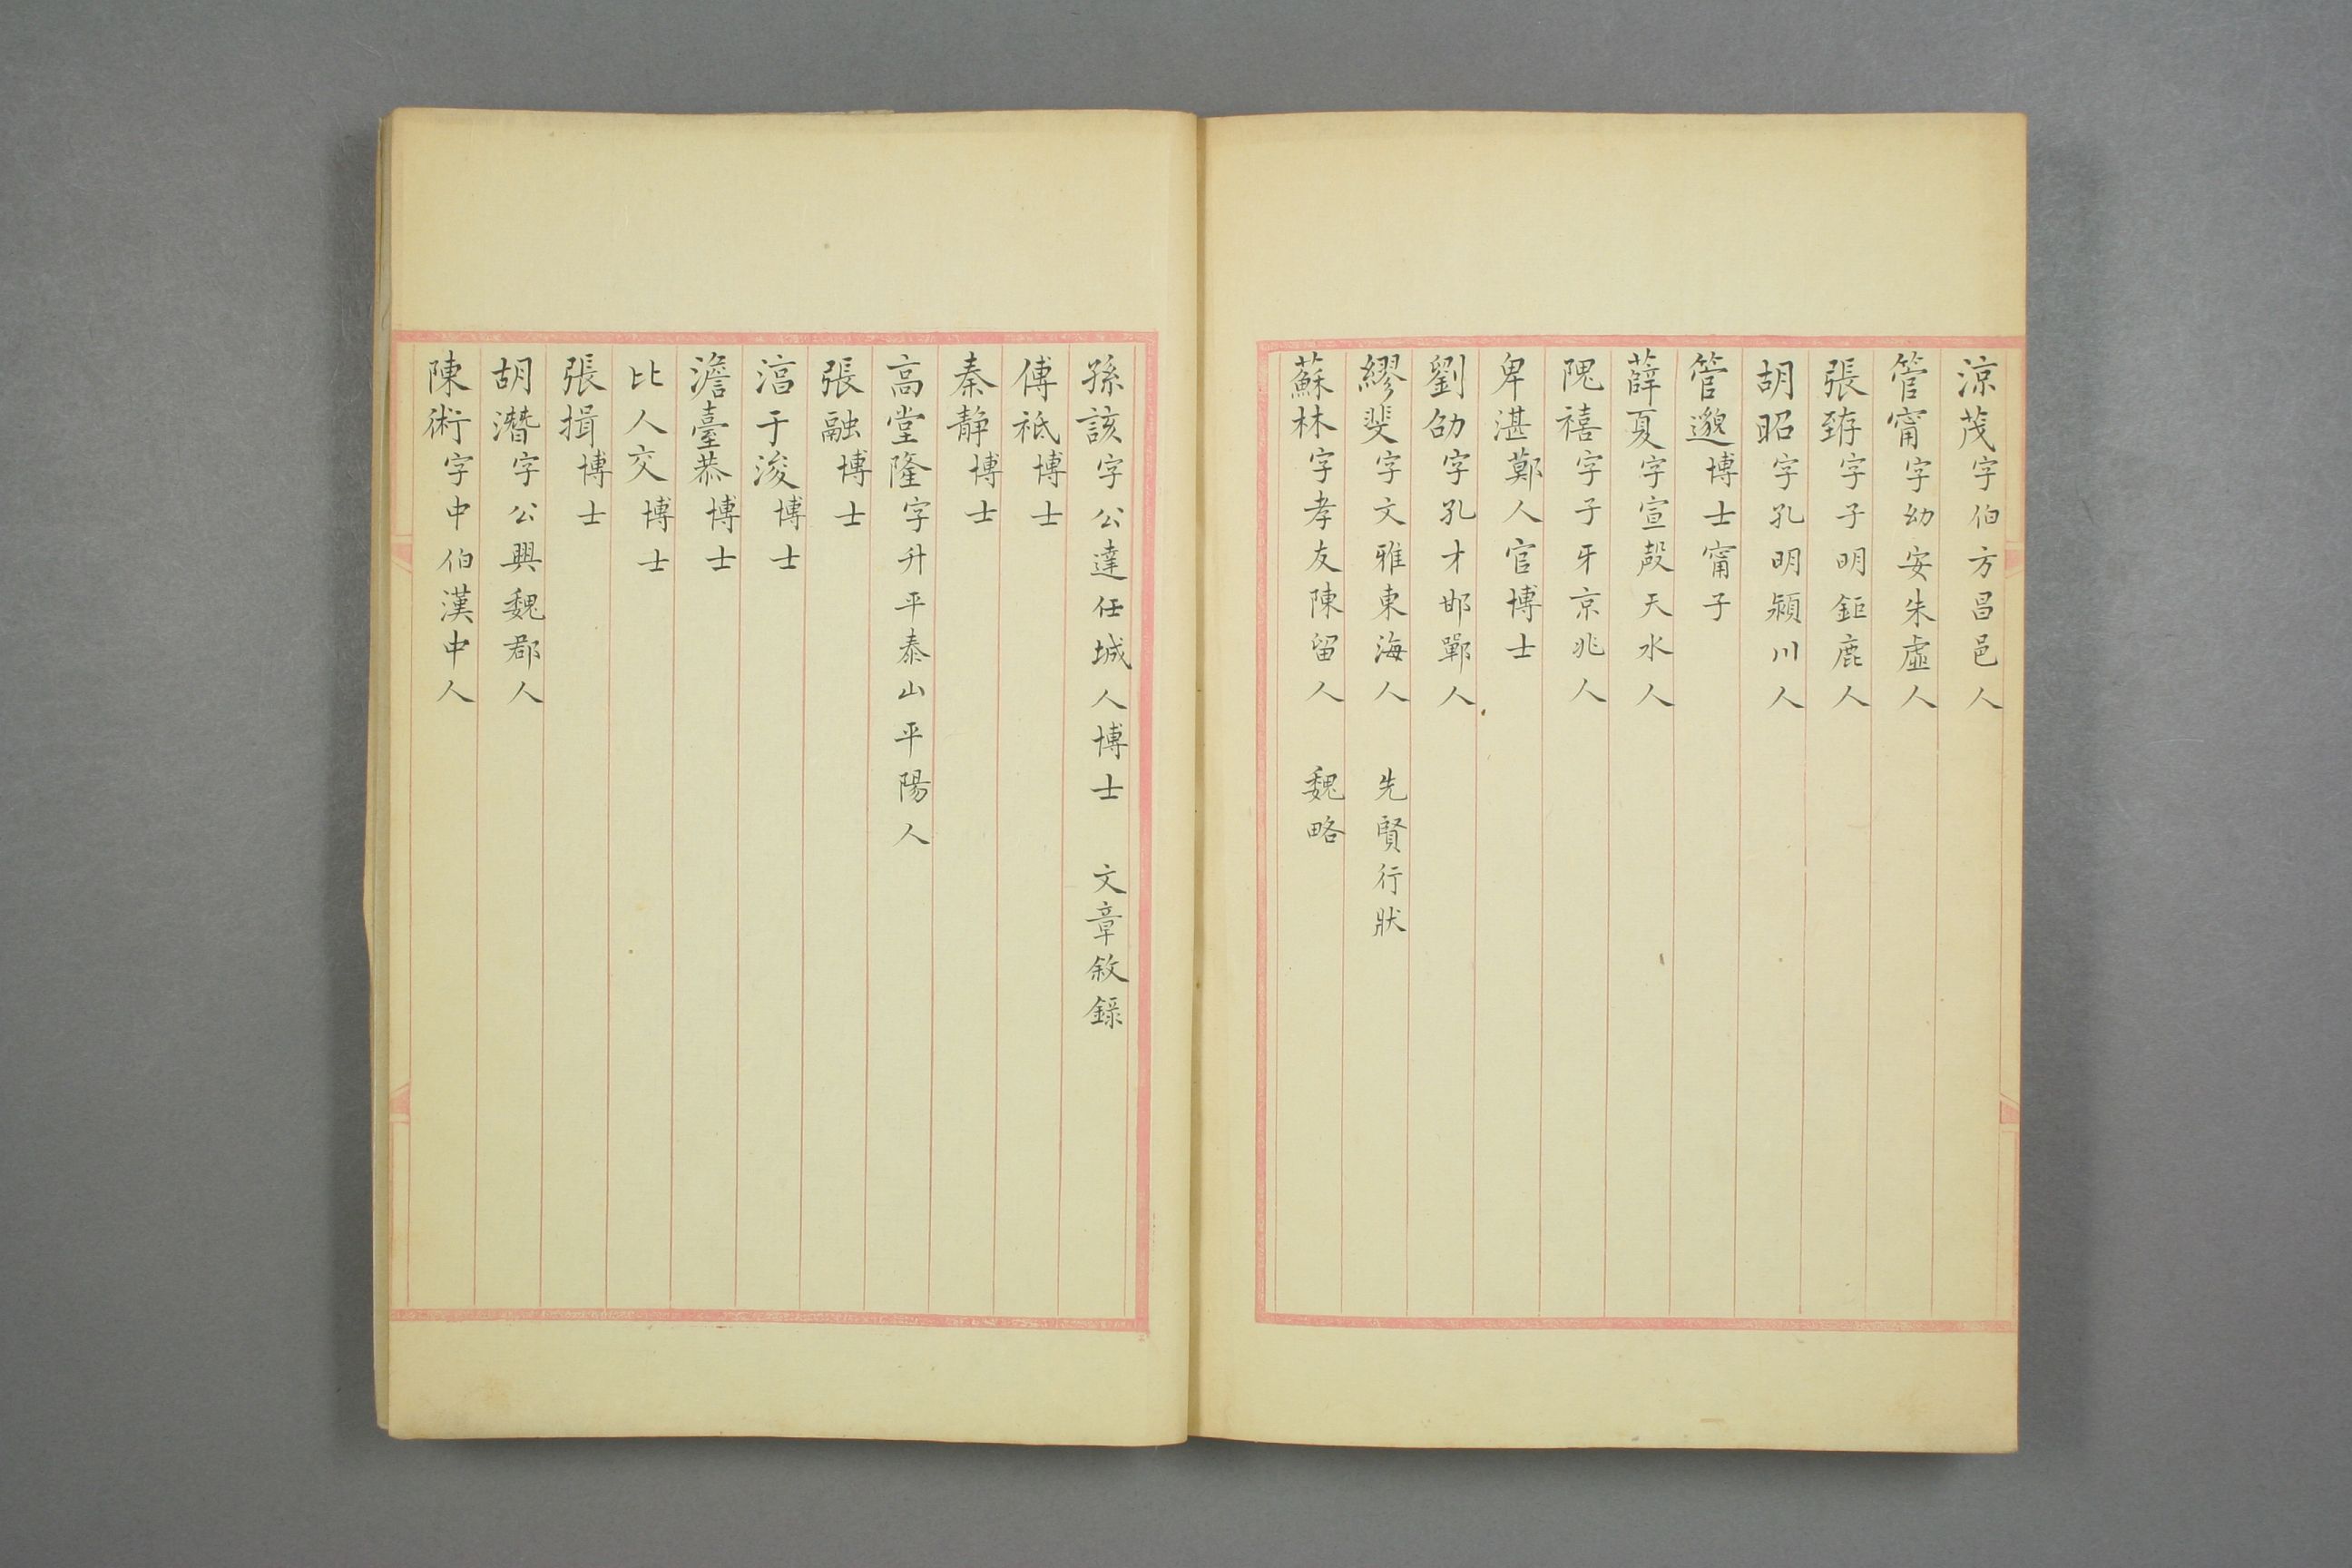 涼茂字伯方昌邑人
管甯字幼安朱虛人
張臶字子明鉅鹿人
胡昭字孔明潁川人
管邈博士甯子
薛夏字宣殸天水人
隗禧字子牙京兆人
卑湛鄭人官博士
劉劭字孔才邯鄲人
繆斐字文雅東海人 先賢行狀
蘇林字孝友陳留人 魏略
孫該字公達任城人博士 文章敘錄
傅祗博士
秦静博士
高堂隆字升平泰山平陽人
張融博士
于浚博士
澹臺恭博士
比人交博士
張揖博士
胡濳字公興魏郡人
陳術字中伯漢中人